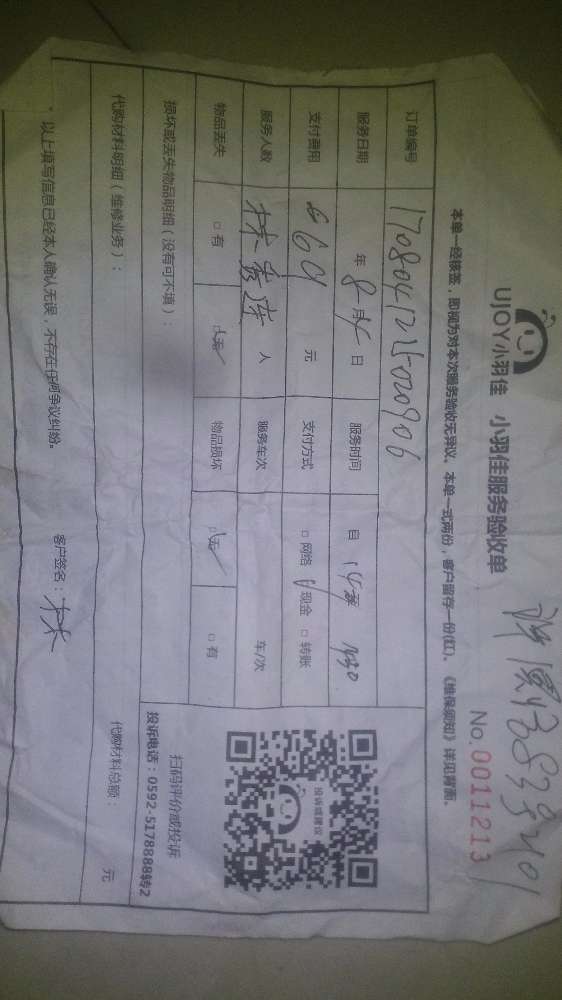 UJOY小羽佳 小羽佳服务验收单
No.0011213
本单一经核签，即视为对本次服务验收无异议。本单一式两份，客户留存一份(红)。《维保须知》详见背面。
订单编号
服务日期 年 8月 日 服务时间 自
支付费用 元 支付方式 □网络 现金 □转账
服务人数 人 服务车次 车/次
物品丢失 □有 无 物品损坏 无 □有
损坏或丢失物品明细（没有可不填）：
投诉或建议
扫码评价或投诉
投诉电话：0592-5178888转2
代购材料明细（维修业务）： 代购材料总额： 元
以上填写信息已经本人确认无误，不存在任何争议纠纷。 客户签名：林